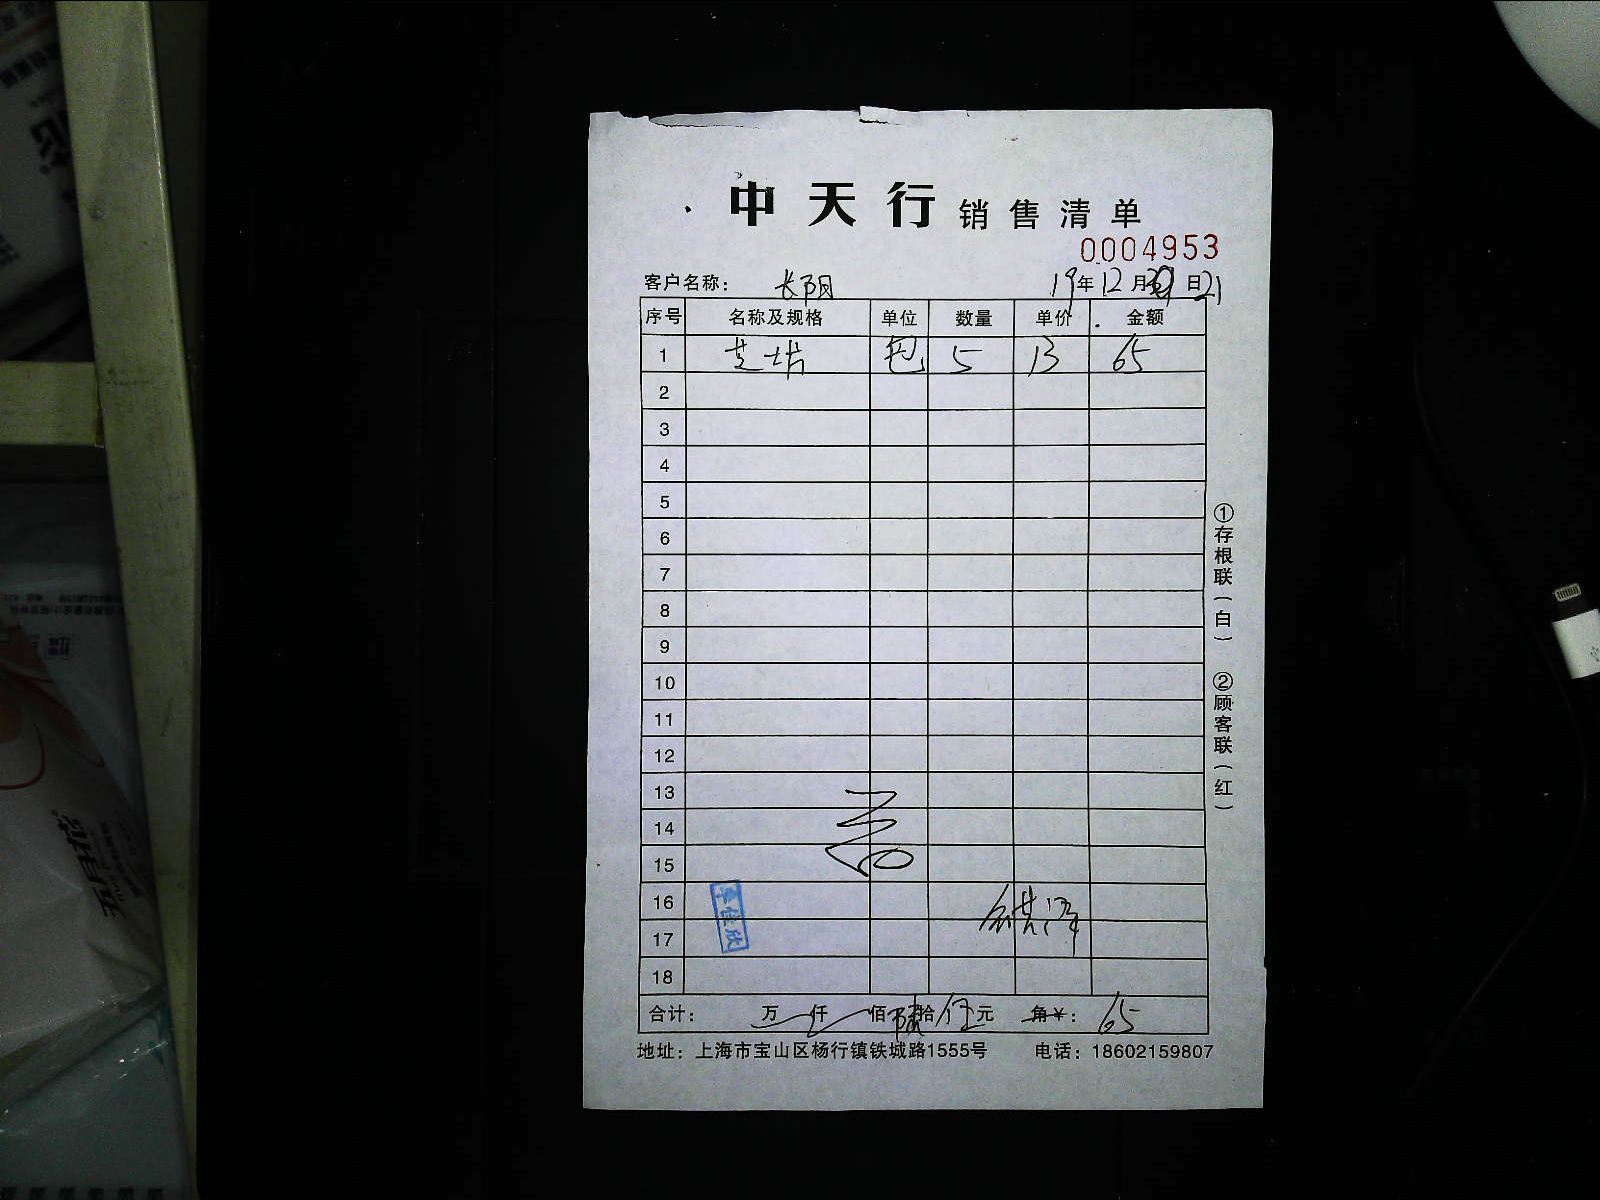 中天行 销售清单
0004953
客户名称： 长阳 19年12月 日21
序号 名称及规格 单位 数量 单价 金额
1 芝士片 包 5 13 65
2
3
4
5
6
7
8
9
10
11
12
13
14
15
16
17
18
合计： 万 仟 佰陆拾伍元 角¥： 65
地址：上海市宝山区杨行镇铁城路1555号 电话：18602159807
①存根联（白） ②顾客联（红）